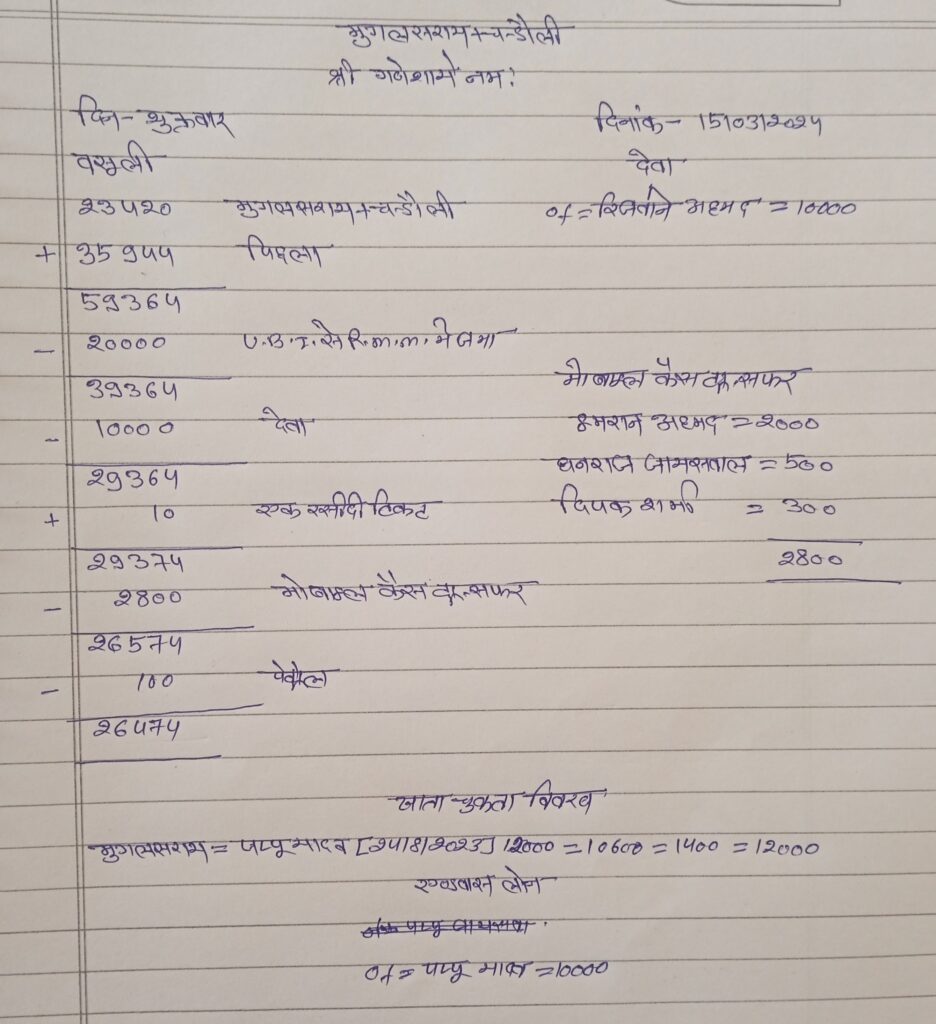 मुगलसराय+चन्डौली
श्री गणेशाये नम:
दिन- शुक्रवार दिनांक- 15/03/2024
वसूली देवा
23420 मुगलसराय+चन्डौली of = रिजवान अहमद = 10000
+ 35944 पिछला
59364
- 20000 U.B.I. से R.m.m. मे जमा
39364 मोबाइल कैस ट्रान्सफर
- 10000 देवा इमरान अहमद = 2000
29364 धनराज जायसवाल = 500
+ 10 एक रसीदी टिकट दिपक शर्मा = 300
29374 2800
- 2800 मोबाइल कैस ट्रान्सफर
26574
- 100 पेट्रोल
26474
खाता चुकता विवरण
मुगलसराय = पप्पू यादव [24/8/2023] 12000 = 10600 = 1400 = 12000
एडवांस लोन
of = पप्पू यादव = 10000